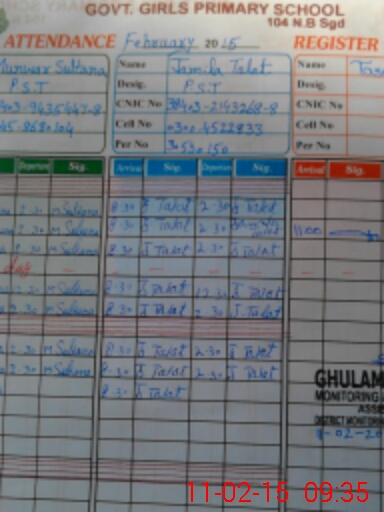 GOVT. GIRLS PRIMARY SCHOOL
104 N.B Sgd
ATTENDANCE February 2015 REGISTER
Munwar Sultana Name Jamila Talat Name
P.S.T Desig. P.S.T Desig.
CNIC No CNIC No
Cell No 0300-4522833 Cell No
Per No 30530150 Per No
Departure Sig. Arrival Sig. Departure Sig. Arrival Sig.
2-30 M Sultana 8-30 J Talat 2-30 J Talat
2-30 M Sultana 8-30 J Talat 2-30 11:00
2-30 M Sultana 8-30 J Talat 2-30 J Talat
2-30 M Sultana 8-30 J Talat 12-30 J Talat
2-30 M Sultana 8-30 J Talat 2-30 J. Talat
2-30 M Sultana 8-30 J Talat 2-30 J Talat
2-30 M Sultana 8-30 J Talat 2-30 J Talat
8-30 J Talat
GHULAM
MONITORING
ASSE
DISTRICT MONITORI
11-02-15 09:35